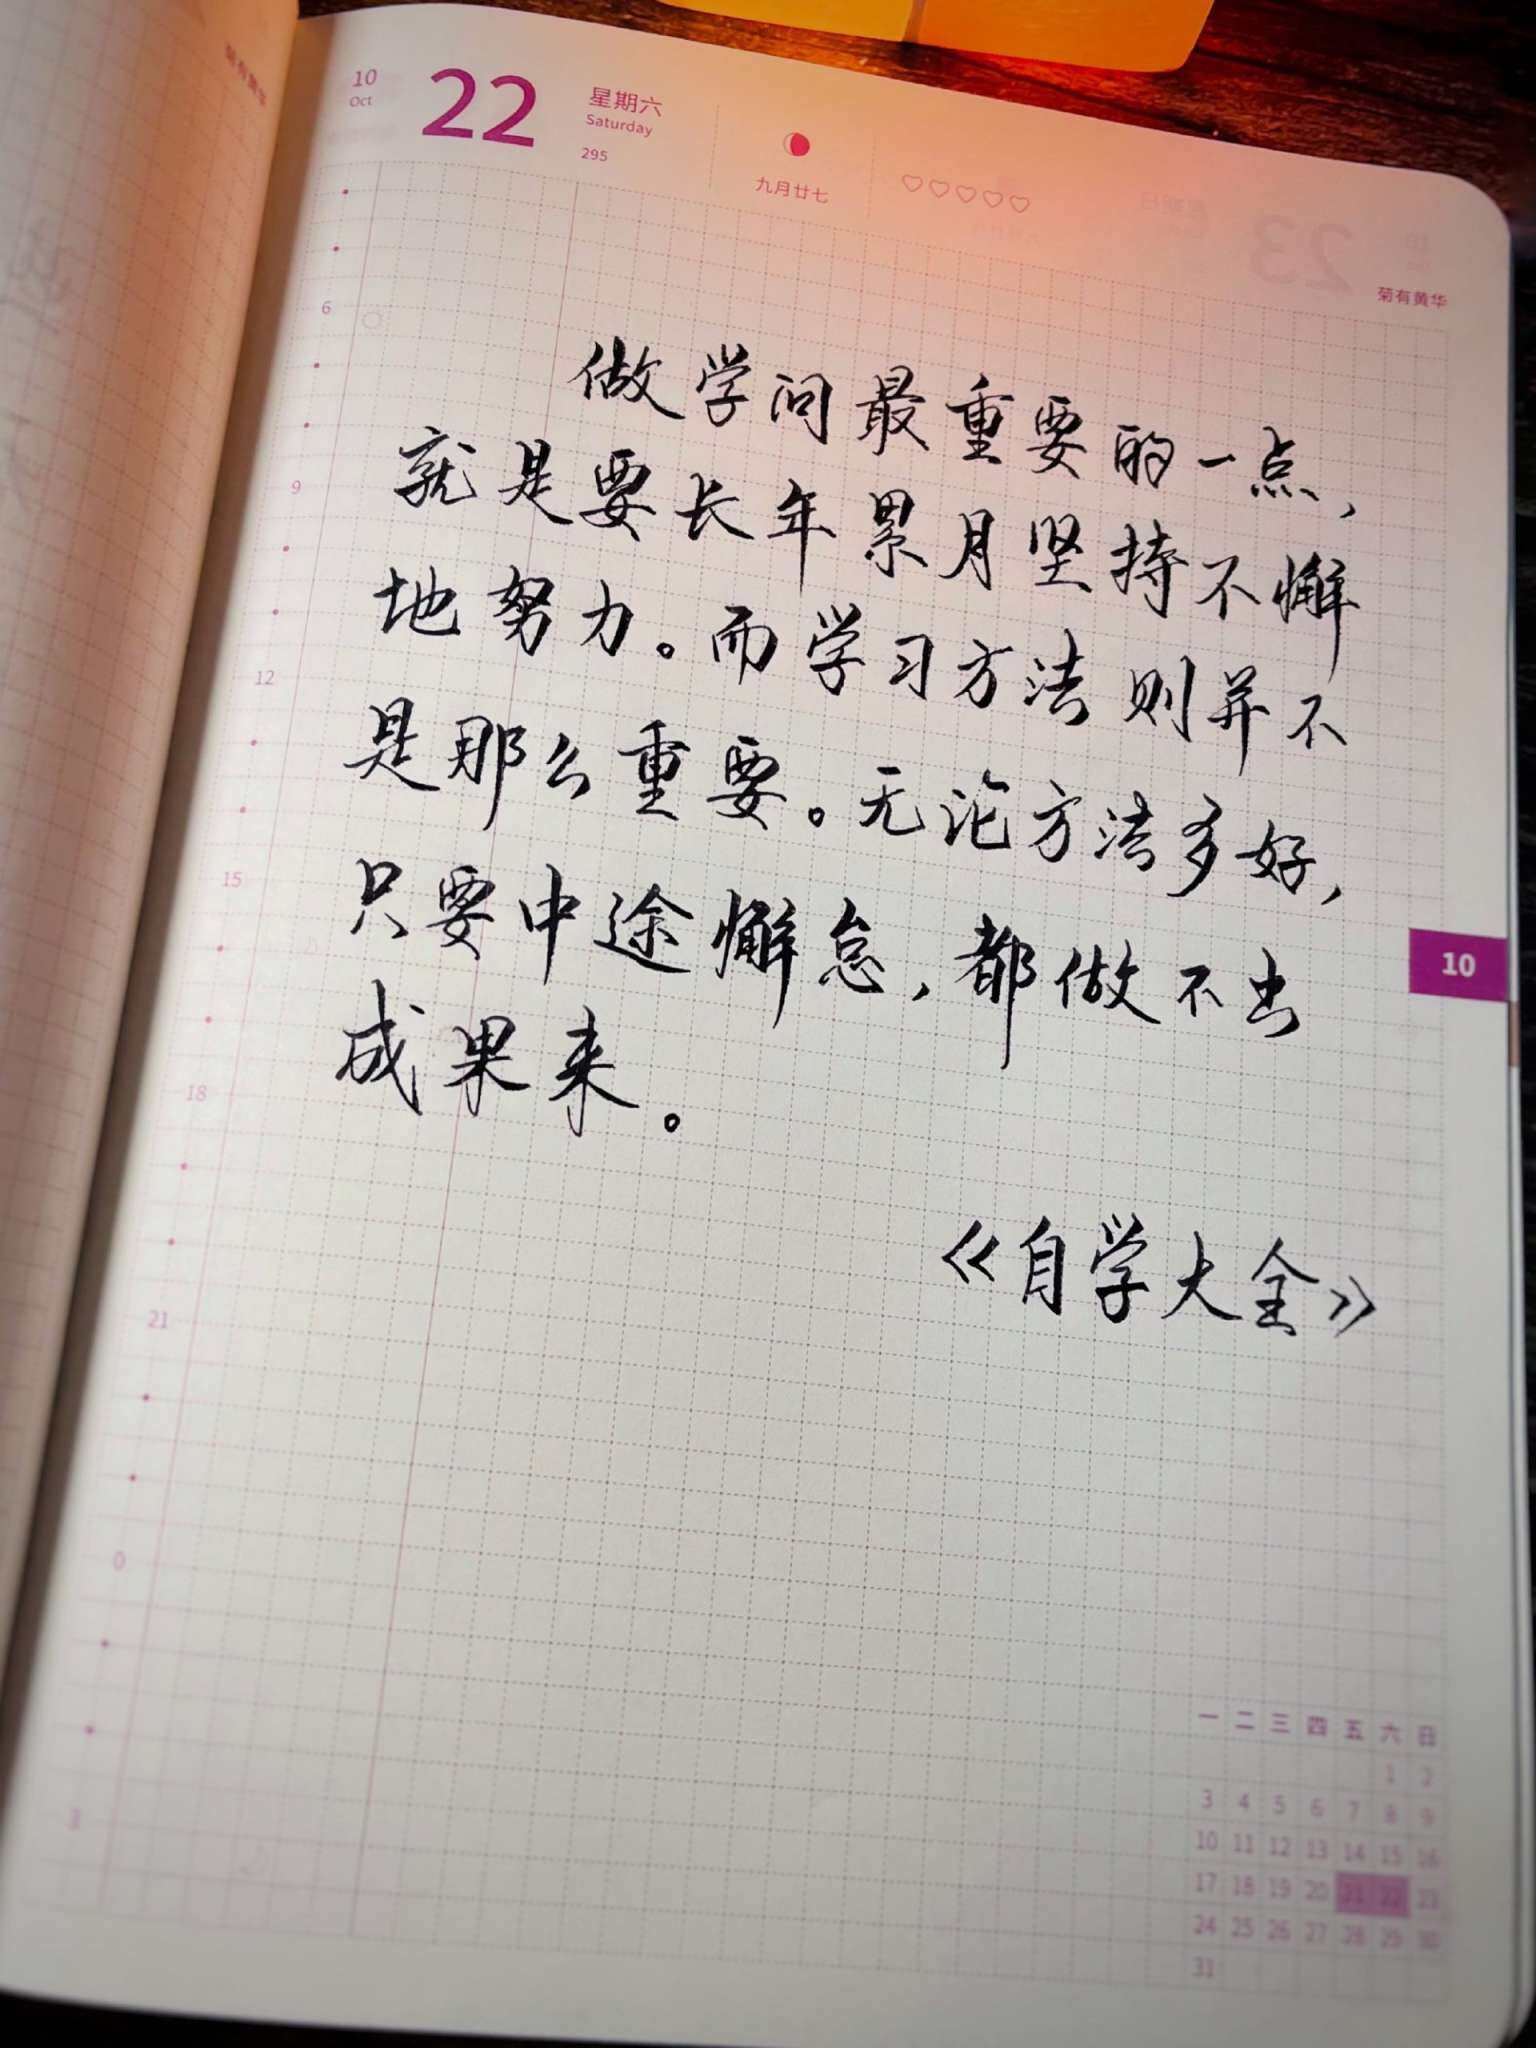 10
Oct
22
星期六
Saturday
295
九月廿七
菊有黄华
做学问最重要的一点,
就是要长年累月坚持不懈
地努力。而学习方法则并不
是那么重要。无论方法多好,
只要中途懈怠,都做不出
成果来。
《自学大全》
6
9
12
15
18
21
0
3
10
一 二 三 四 五 六 日
1 2
3 4 5 6 7 8 9
10 11 12 13 14 15 16
17 18 19 20 21 22 23
24 25 26 27 28 29 30
31